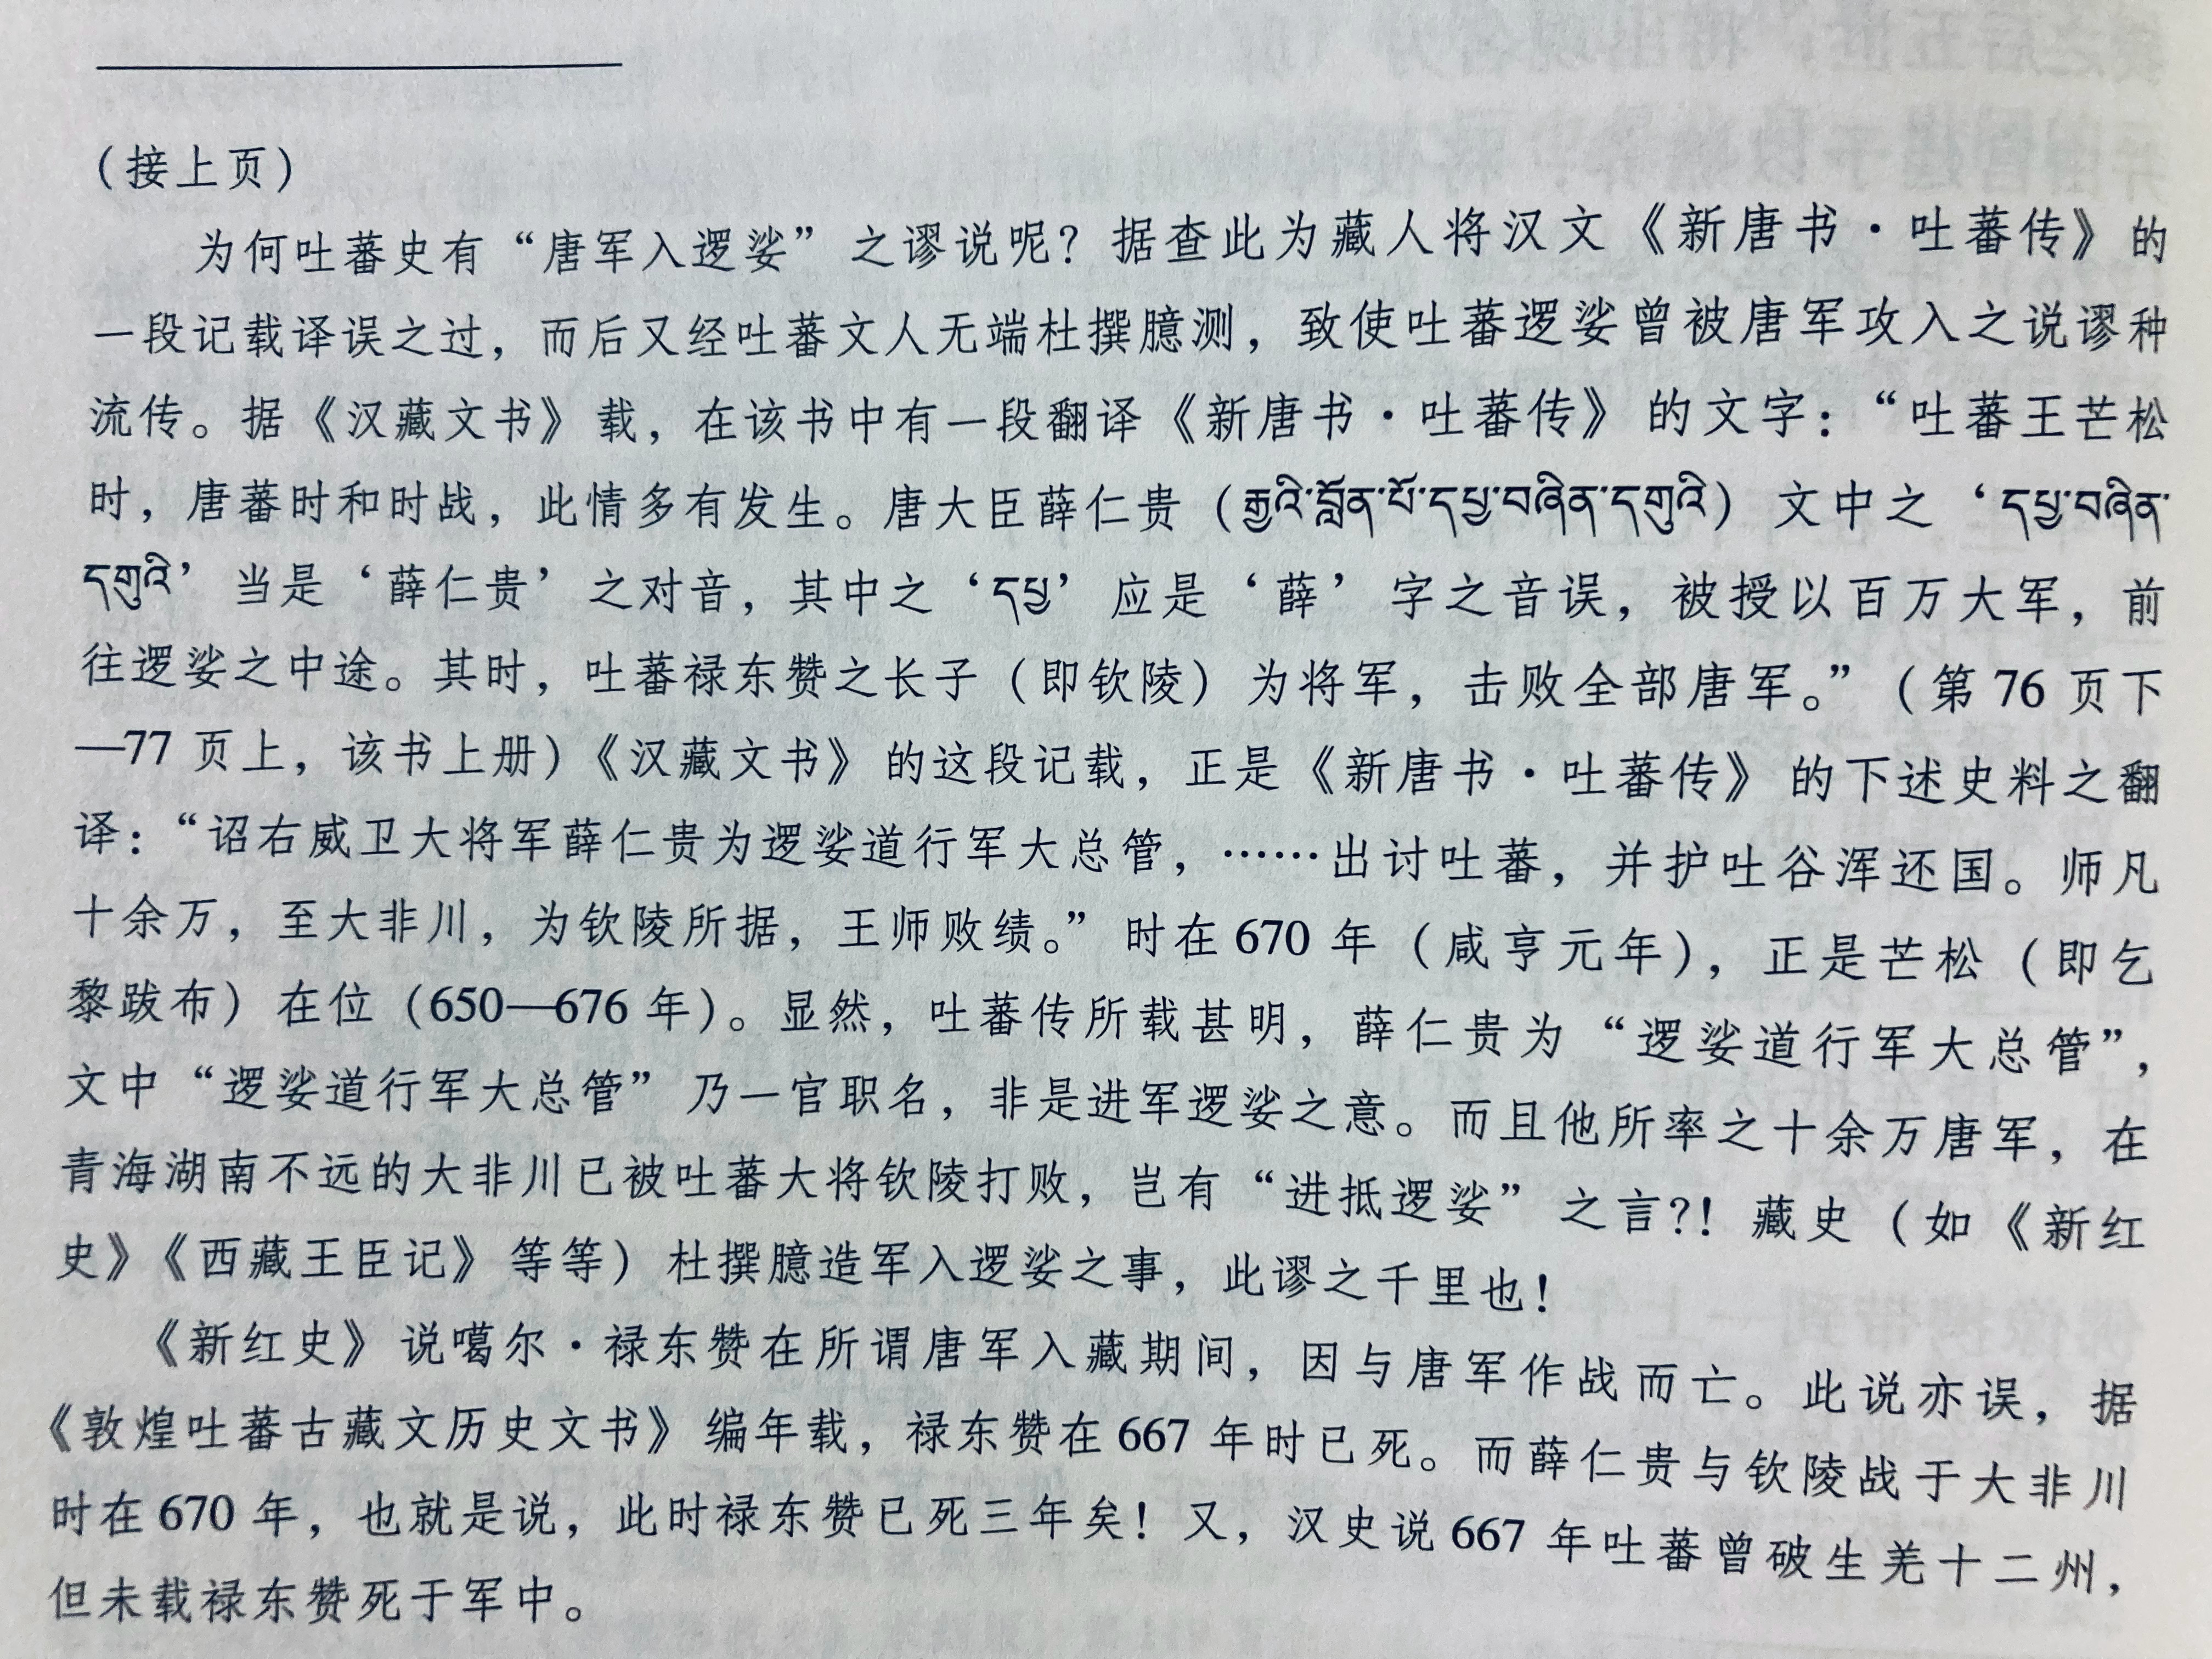 （接上页）
为何吐蕃史有“唐军入逻娑”之谬说呢？据查此为藏人将汉文《新唐书·吐蕃传》的
一段记载译误之过，而后又经吐蕃文人无端杜撰臆测，致使吐蕃逻娑曾被唐军攻入之说谬种
流传。据《汉藏文书》载，在该书中有一段翻译《新唐书·吐蕃传》的文字：“吐蕃王芒松
时，唐蕃时和时战，此情多有发生。唐大臣薛仁贵（རྒྱའི་བློན་པོ་དཔྱ་བཞིན་དགུའི）文中之‘དཔྱ་བཞིན་
དགུའི’当是‘薛仁贵’之对音，其中之‘དཔྱ’应是‘薛’字之音误，被授以百万大军，前
往逻娑之中途。其时，吐蕃禄东赞之长子（即钦陵）为将军，击败全部唐军。”（第76页下
—77页上，该书上册）《汉藏文书》的这段记载，正是《新唐书·吐蕃传》的下述史料之翻
译：“诏右威卫大将军薛仁贵为逻娑道行军大总管，……出讨吐蕃，并护吐谷浑还国。师凡
十余万，至大非川，为钦陵所据，王师败绩。”时在670年（咸亨元年），正是芒松（即乞
黎跋布）在位（650—676年）。显然，吐蕃传所载甚明，薛仁贵为“逻娑道行军大总管”，
文中“逻娑道行军大总管”乃一官职名，非是进军逻娑之意。而且他所率之十余万唐军，在
青海湖南不远的大非川已被吐蕃大将钦陵打败，岂有“进抵逻娑”之言？！藏史（如《新红
史》《西藏王臣记》等等）杜撰臆造军入逻娑之事，此谬之千里也！
《新红史》说噶尔·禄东赞在所谓唐军入藏期间，因与唐军作战而亡。此说亦误，据
《敦煌吐蕃古藏文历史文书》编年载，禄东赞在667年时已死。而薛仁贵与钦陵战于大非川
时在670年，也就是说，此时禄东赞已死三年矣！又，汉史说667年吐蕃曾破生羌十二州，
但未载禄东赞死于军中。